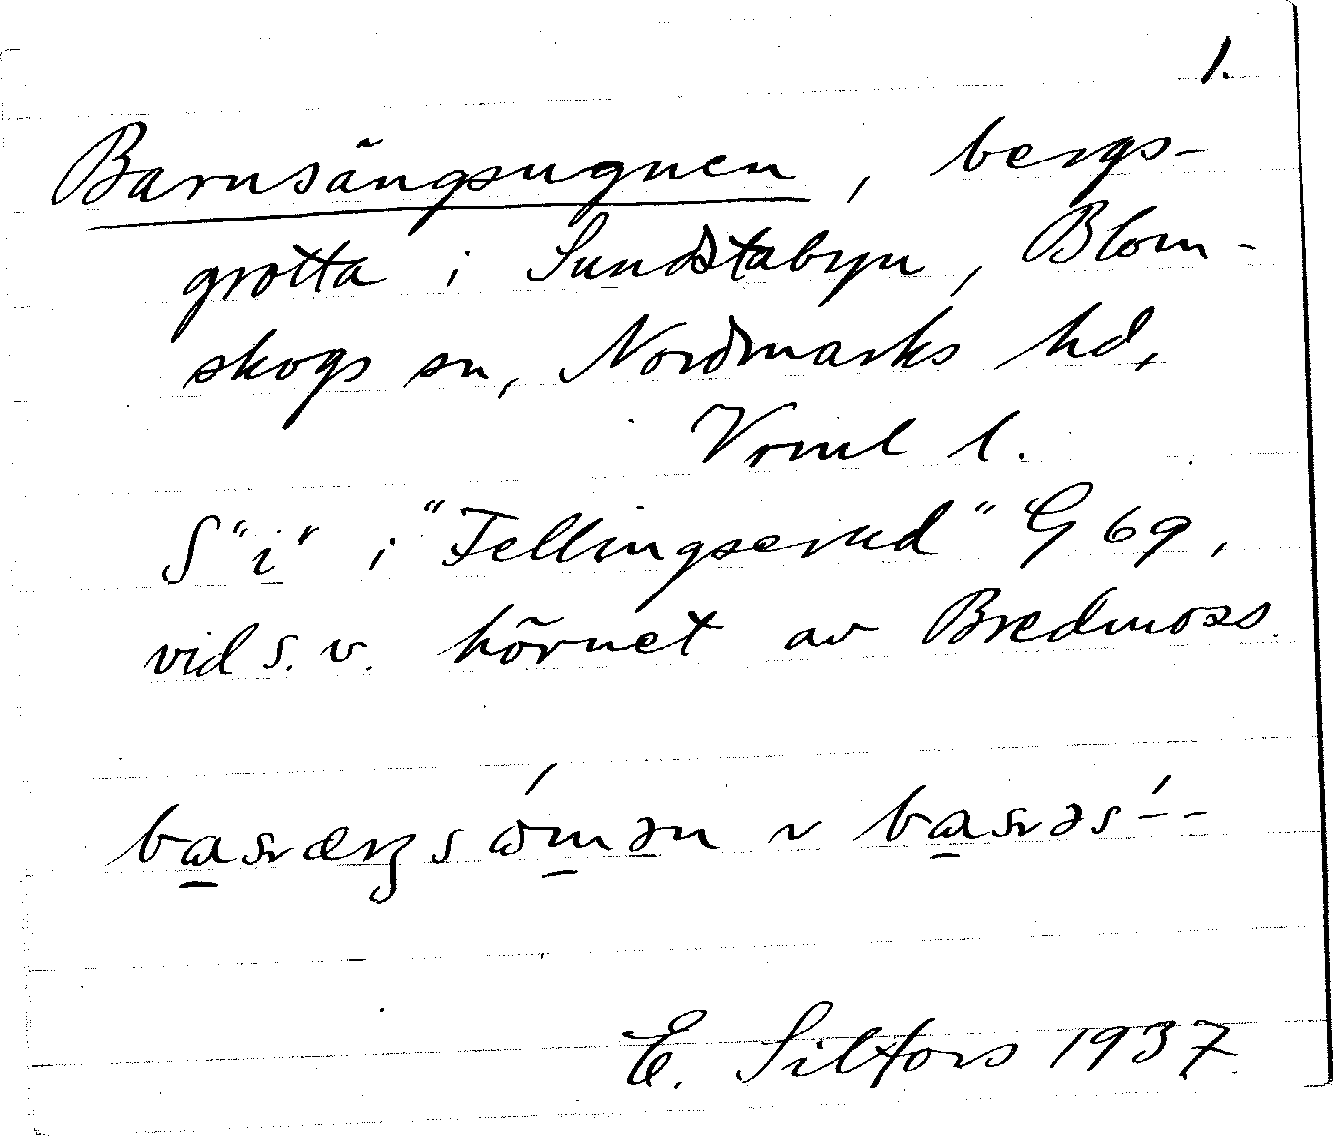 1.
Barnsängsugnen, bergs-
grotta i Sundstabyn, Blom-
skogs sn, Nordmarks hd,
Vrml l.
S "i" i "Tellingserud" G 69,
vid s.v. hörnet av Bredmoss.
E. Silfors 1937